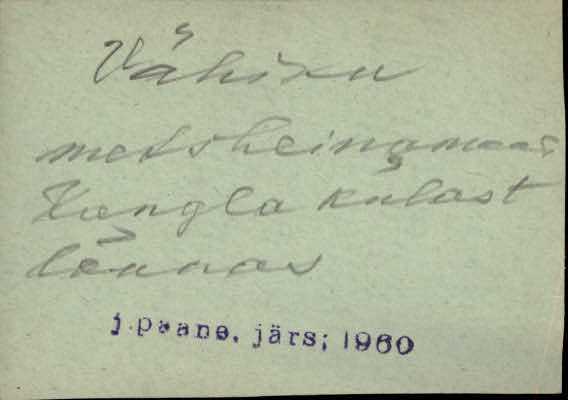 Vähiku
metsheinamaa
Kangla külast
lõunas
j.paane, järs; 1960